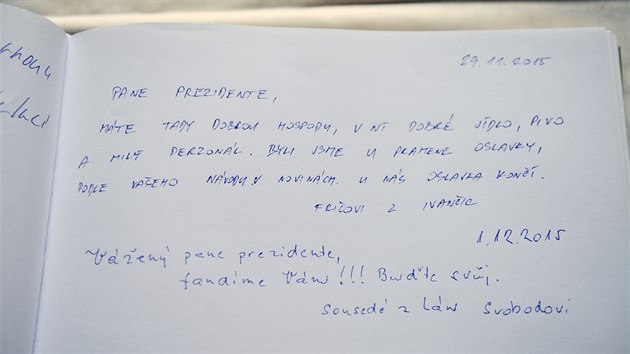 29.11.2015
PANE PREZIDENTE,
MÁTE TADY DOBROU HOSPODU, V NÍ DOBRÉ JÍDLO, PIVO
A MILÝ PERZONÁL. BYLI JSME U PRAMENE OSLAVKY,
PODLE VAŠEHO NÁVODU V NOVINÁCH. U NÁS OSLAVKA KONČÍ.
FRIČOVI Z IVANČIC
1.12.2015
Vážený pane prezidente,
fandíme Vám!!! Buďte svůj.
Sousedé z Lán Svobodovi